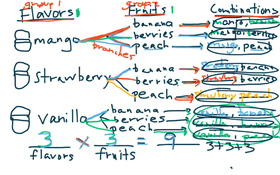 group 1 group 1
Flavors 1 Fruits 1 Combinations
banana mango,
mango berries mango, berries
branches peach mango, peach
banana
Strawberry berries berries
peach peach
banana vanilla, banana
vanilla berries vanilla, berries
peach vanilla, peach
3 x 3 = 9
flavors fruits 3+3+3